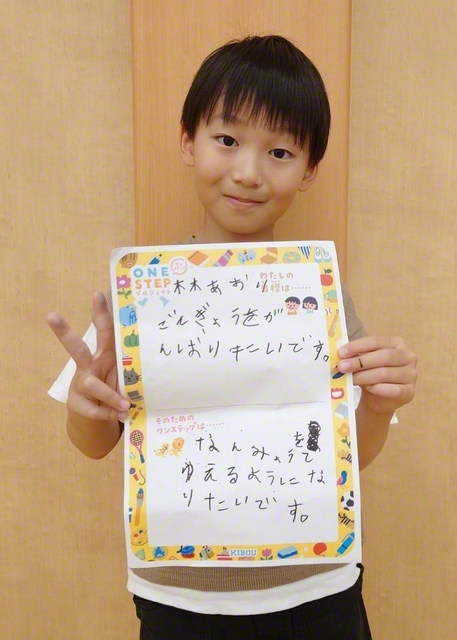 ONE
STEP
プロジェクト
わたしの
目標は……
林あおい
ごんぎょうをが
んばりたいです。
そのための
ワンステップは……
なんみょう
ゆえるようにな
りたいです。
KIBOU